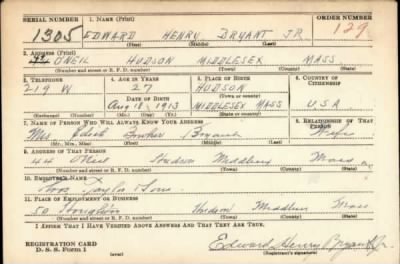 SERIAL NUMBER 1. NAME (Print) ORDER NUMBER
1305 EDWARD HENRY BRYANT JR 129
(First) (Middle) (Last)
2. ADDRESS (Print)
44 O'NEIL HUDSON MIDDLESEX MASS
(Number and street or R. F. D. number) (Town) (County) (State)
3. TELEPHONE 4. AGE IN YEARS 5. PLACE OF BIRTH 6. COUNTRY OF CITIZENSHIP
219 W 27 HUDSON
DATE OF BIRTH (Town or county)
Aug 18, 1913 MIDDLESEX MASS U.S.A
(Exchange) (Number) (Mo.) (Day) (Yr.) (State or country)
7. NAME OF PERSON WHO WILL ALWAYS KNOW YOUR ADDRESS 8. RELATIONSHIP OF THAT PERSON
Mrs Edith Bryant Wife
(Mr., Mrs., Miss) (First) (Middle) (Last)
9. ADDRESS OF THAT PERSON
44 O'Neil Hudson Middlesex Mass
(Number and street or R. F. D. number) (Town) (County) (State)
10. EMPLOYER'S NAME
Thos Taylor Sons
11. PLACE OF EMPLOYMENT OR BUSINESS
50 Houghton Hudson Middlesex Mass
(Number and street or R. F. D. number) (Town) (County) (State)
I AFFIRM THAT I HAVE VERIFIED ABOVE ANSWERS AND THAT THEY ARE TRUE.
REGISTRATION CARD
D. S. S. Form 1 (over) Edward Henry Bryant Jr.
(Registrant's signature)